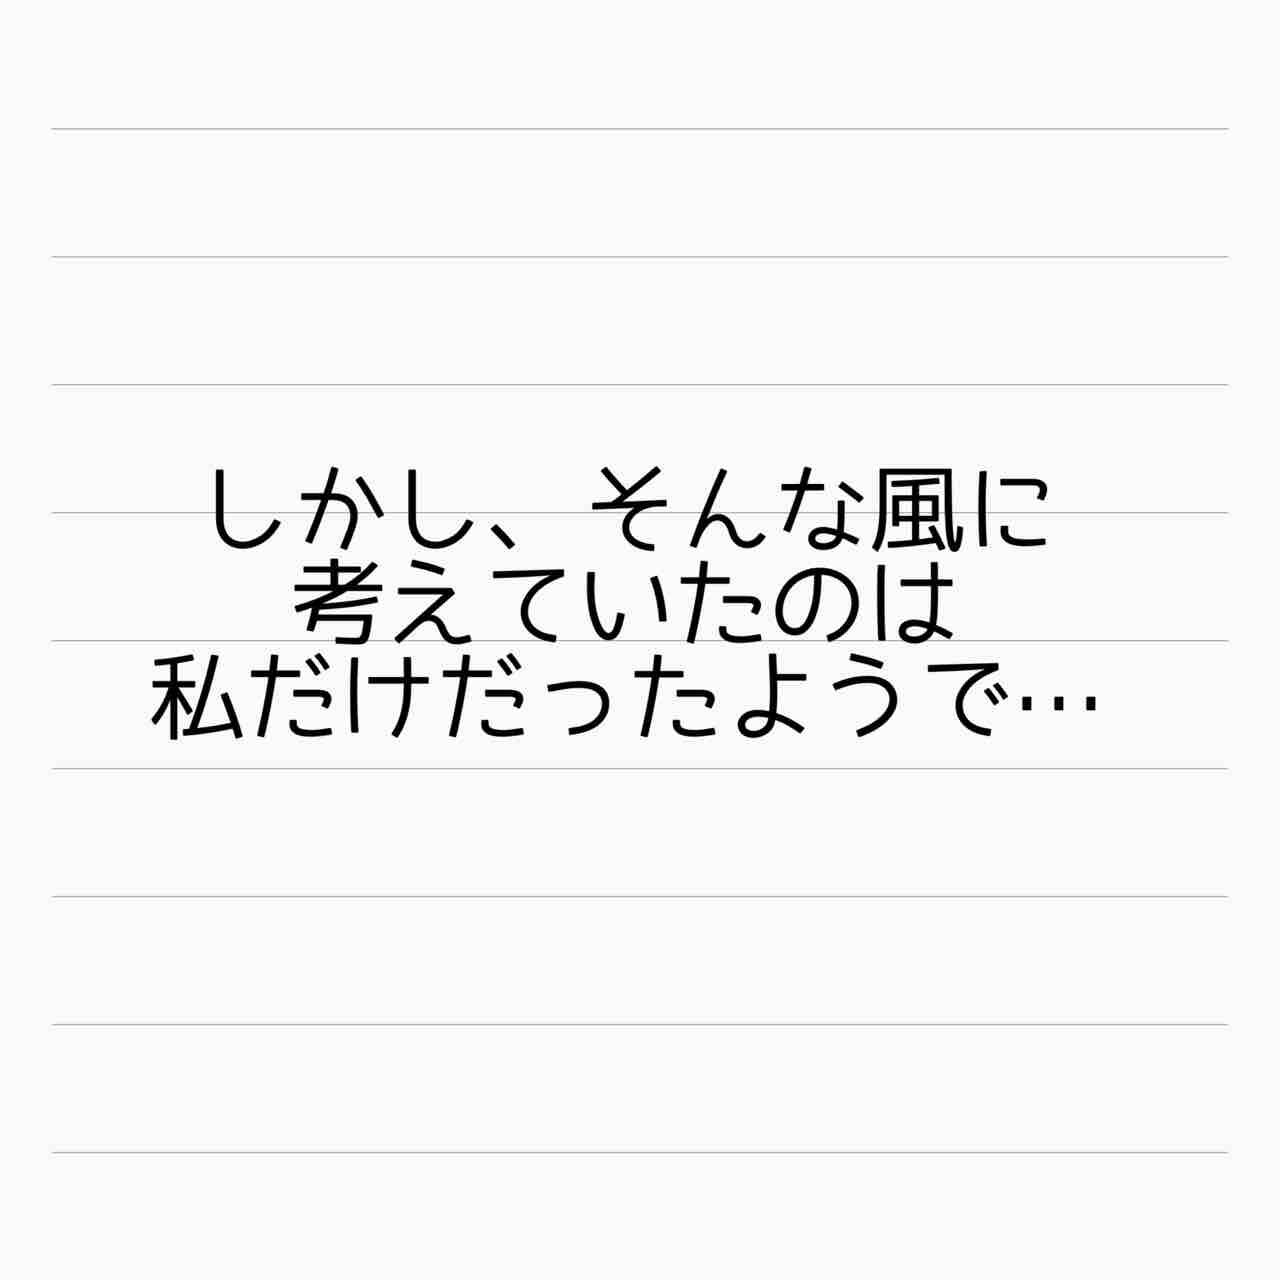 しかし、そんな風に
考えていたのは
私だけだったようで…